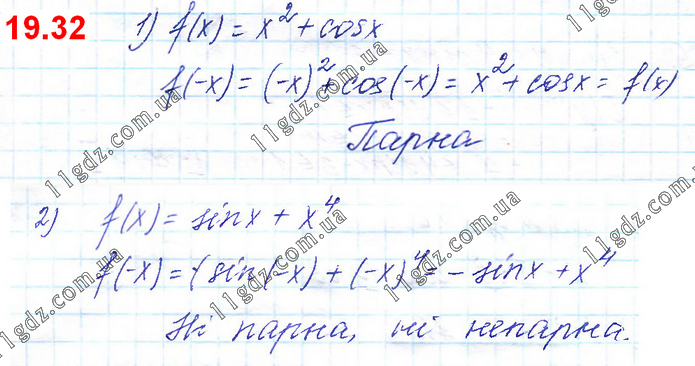 19.32 1) f(x) = x² + cosx
f(-x) = (-x)² + cos(-x) = x² + cosx = f(x)
Парна
2) f(x) = sinx + x⁴
f(-x) = (sin(-x) + (-x)⁴ = - sinx + x⁴
Ні парна, ні непарна.
11gdz.com.ua
11gdz.com.ua
11gdz.com.ua
11gdz.com.ua
11gdz.com.ua
11gdz.com.ua